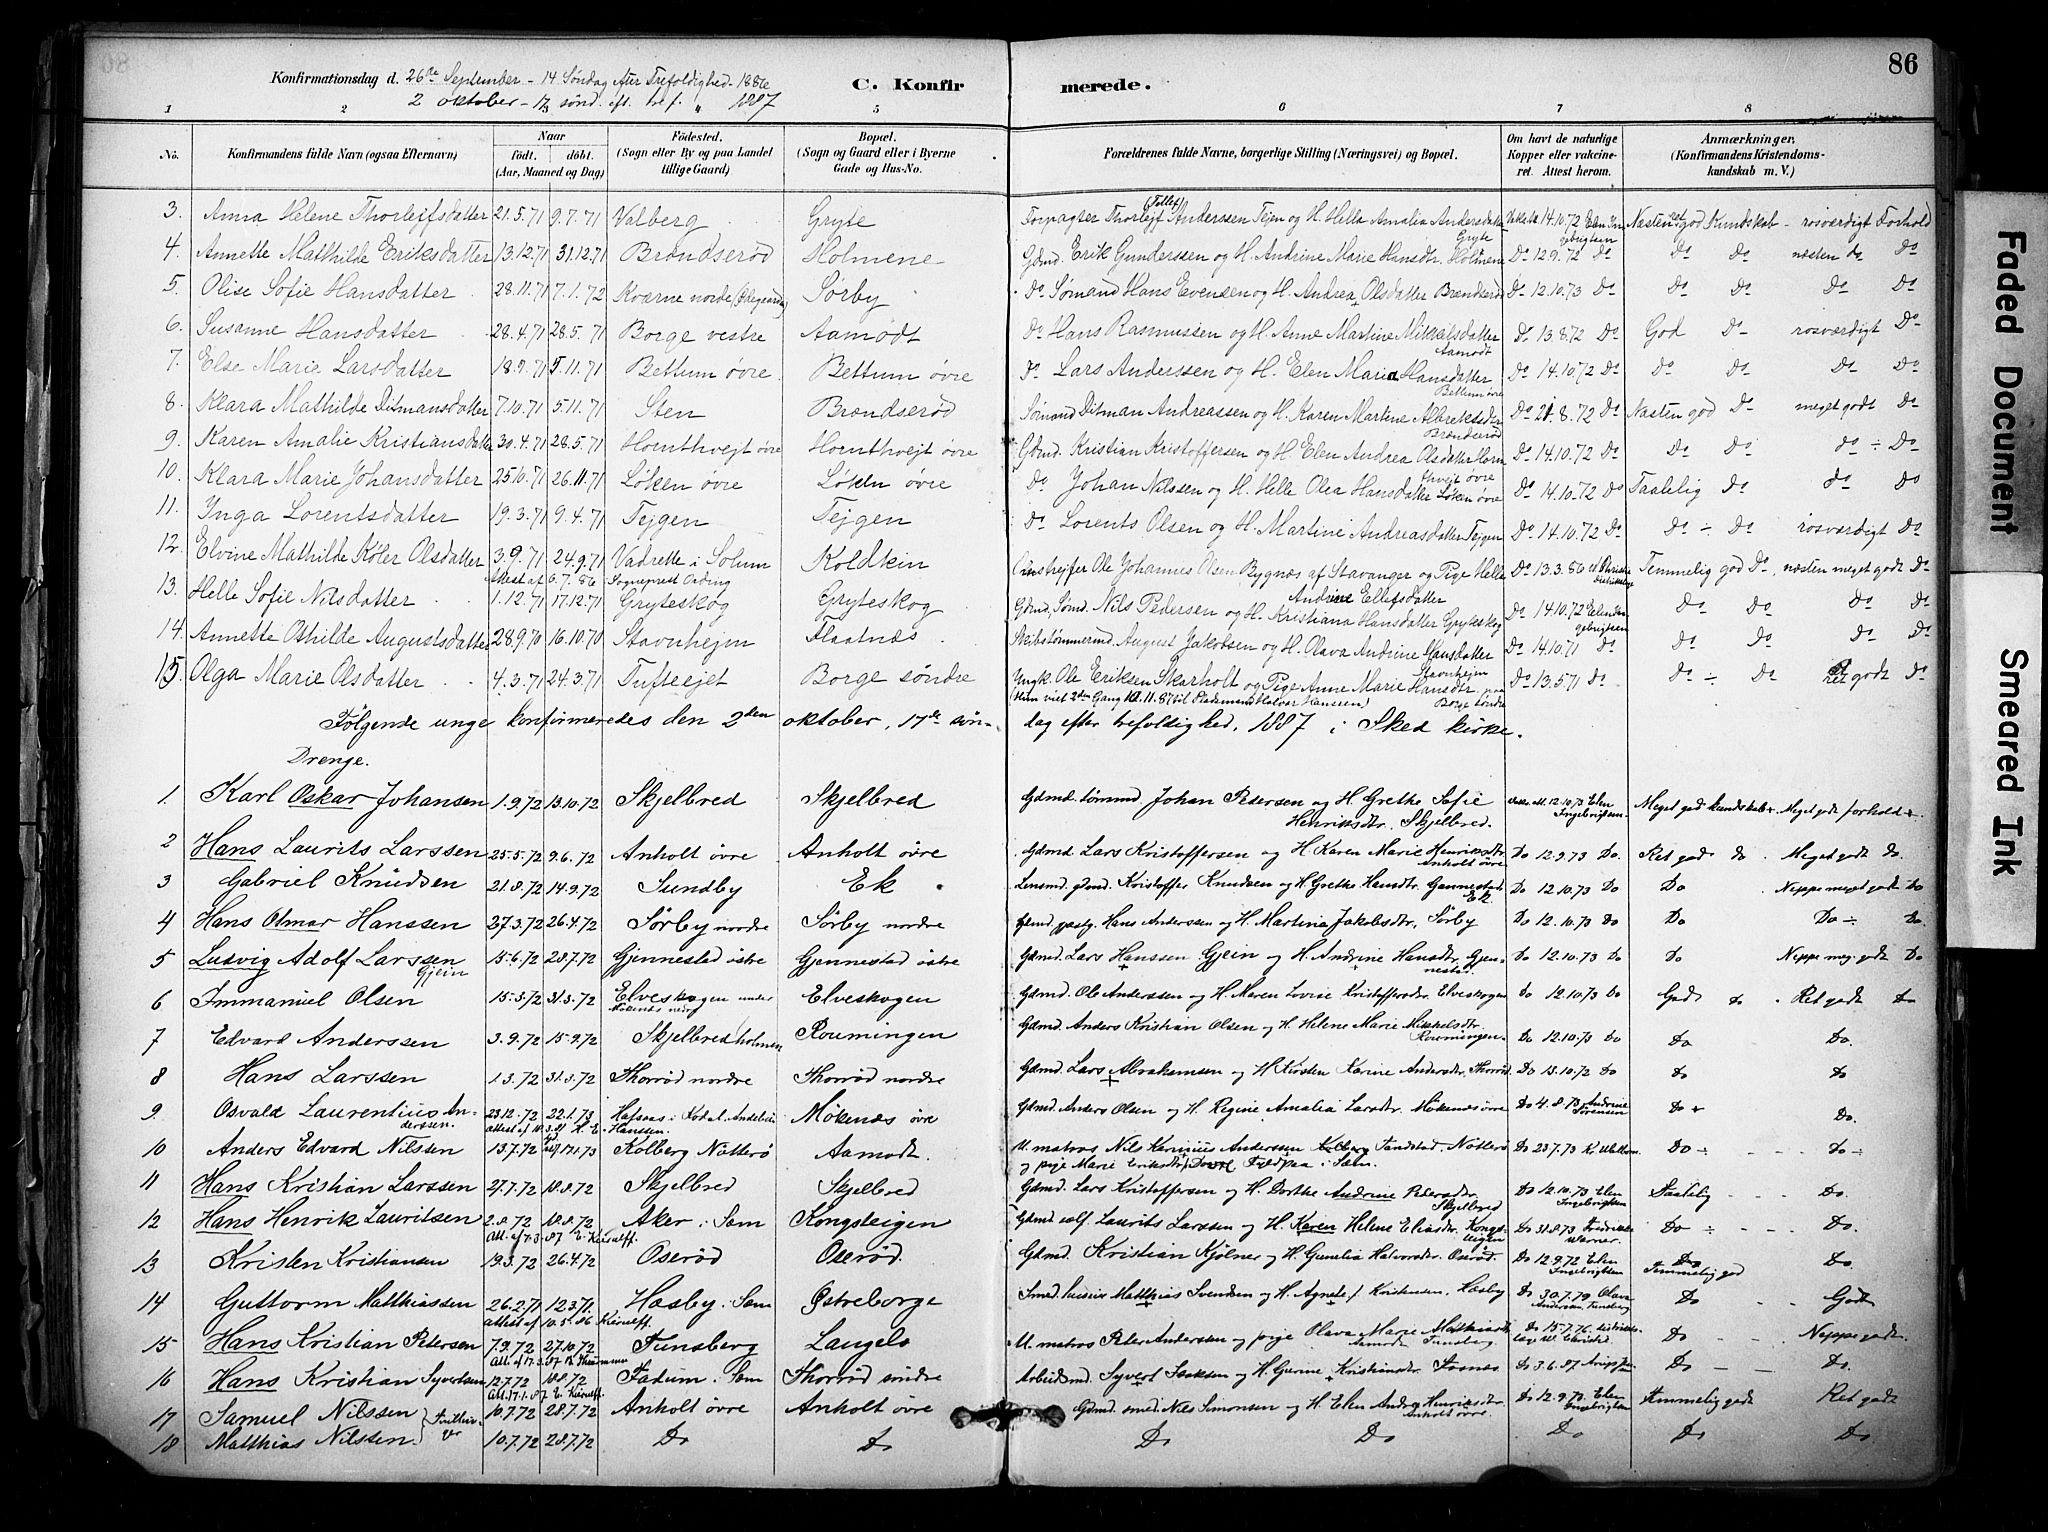 86
Konfirmationsdag d. 26de September - 14 Søndag efter Trefoldighed - 1886
2 oktober - 17 sønd. eft. tref. " 1887
C. Konfirmerede.
1 2 3 5 6 7 8
No. Konfirmandens fulde Navn (ogsaa Efternavn) Naar født. døbt. (Aar, Maaned og Dag) Fødested. (Sogn eller By og paa Landet tillige Gaard) Bopæl. (Sogn og Gaard eller i Byerne Gade og Hus-No. Forældrenes fulde Navne, borgerlige Stilling (Næringsvei) og Bopæl. Om havt de naturlige Kopper eller vakcineret. Attest herom. Anmærkninger, (Konfirmandens Kristendomskundskab m. V.)
3. Anna Helene Thorleifsdatter 21.5.71 9.7.71 Valberg Gryte Forpagter Thorlejf Anderssen Tejen og H. Helle Amalia Andersdatter Gryte 14.10.72 Elen Ingebrigtsen Næsten god Kundskab - rosværdigt Forhold
4. Annette Mathilde Eriksdatter 13.12.71 31.12.71 Brøndserød Holmene Gdmd. Erik Gunderssen og H. Andrine Marie Hansdtr. Holmene Do 12.9.72 Do Do Do næsten do Do
5. Olise Sofie Hansdatter 28.11.71 7.1.72 Kværne nordre Sørby Do Sømand Hans Evensen og H. Andrea Olsdatter Brøndserød Do 12.10.73 Do Do Do Do Do
6. Susanne Hansdatter 28.4.71 28.5.71 Borge vestre Aamodt Do Hans Rasmussen og H. Anne Martine Mikkelsdatter Aamodt Do 13.8.72 Do God Do rosværdigt Do
7. Else Marie Larsdatter 18.9.71 5.11.71 Bettum øvre Bettum øvre Do Lars Anderssen og H. Elen Maria Hansdatter Bettum øvre Do 14.10.72 Do Do Do Do Do
8. Klara Mathilde Ditmansdatter 7.10.71 5.11.71 Sten Brøndserød Sømand Ditman Andreassen og H. Karen Martine Albrektsdtr Brøndserød Do 21.8.72 Do Næsten god Do meget godt Do
9. Karen Amalie Kristiansdatter 30.4.71 28.5.71 Hornthvejt øvre Hornthvejt øvre Gdmd. Kristian Kristoffersen og H. Elen Andrea Olsdatter Hornthvejt øvre Do 14.10.72 Do Do Do Do ÷ Do
10. Klara Marie Johansdatter 25.10.71 26.11.71 Løken øvre Løken øvre Do Johan Nilssen og H. Helle Olea Hansdatter Løken øvre Do 14.10.72 Do Taalelig Do Do Do
11. Inga Lorentsdatter 19.3.71 9.4.71 Tejgen Tejgen Do Lorents Olsen og H. Martine Andreasdatter Tejgen Do 14.10.72 Do Do ÷ Do rosværdigt Do
12. Elvine Mathilde Køler Olsdatter 3.9.71 24.9.71 Vadrette i Solum Koldkin Ole Johannes Olsen Bygnæs af Stavanger og Pige Helle Andrine Ellefsdatter Do 13.3.86 Temmelig god Do næsten meget godt Do
Attest af 6.7.86 Sogneprest Ording
13. Helle Sofie Nilsdatter 1.12.71 17.12.71 Gryteskog Gryteskog Gdmd. Sømd. Nils Pedersen og H. Kristiana Hansdatter Gryteskog Do 14.10.72 Elen Ingebrigtsen Do Do Do Do
14. Annette Othilde Augustsdatter 28.9.70 16.10.70 Stavnhejm Flaatnæs Skibstømmermd August Jakobsen og H. Olava Andrine Hansdatter Stavnhejm Do 14.10.71 Do Do Do Do Do
15. Olga Marie Olsdatter 4.3.71 24.3.71 Tufteejet Borge søndre Ungk. Ole Eriksen Skarholt og Pige Anne Marie Hansdtr. Borge søndre Do 13.5.71 Do Do ÷ Do ret godt Do
Følgende unge konfirmeredes den 2den oktober, 17de søndag efter trefoldighed, 1887 i Sked kirke.
Drenge.
1. Karl Oskar Johansen 1.9.72 13.10.72 Skjelbred Skjelbred Gdmd. tømmd Johan Pedersen og H. Grethe Sofie Henriksdtr. Skjelbred. 12.10.73 Elen Ingebrigtsen. Meget god kundskab. Meget godt forhold.
2 Hans Laurits Larssen 25.5.72 9.6.72 Anholt øvre Anholt øvre Gdmd. Lars Kristoffersen og H Karen Marie Henriksdtr Anholt øvre Do 12.9.73 Do. Ret god do Meget godt do.
3 Gabriel Knudsen 21.8.72 14.9.72 Sundby Ek Lensmd. gdmd. Kristoffer Knudsen og H. Grethe Hansdtr. Gannestad Ek Do 12.10.73 Do Do Neppe meget godt Do
4 Hans Otmar Hanssen 27.3.72 26.4.72 Sørby nordre Sørby nordre Gdmd. Hans Anderssen og H. Martina Jakobsdtr. Sørby Do 12.10.73 Do Do Do ÷ Do
5 Ludvig Adolf Larssen Gjein 15.6.72 28.7.72 Gjennestad østre Gjennestad østre Gdmd. Lars Hanssen Gjein og H. Andrine Hansdtr. Gjennestad Do 12.10.73 Do Do Neppe meg. godt Do
6 Immanuel Olsen 15.3.72 31.3.72 Elveskogen under Møknæs nedre Elveskogen Gdmd. Ole Anderssen og H. Maren Lovise Kristoffersdtr. Elveskogen Do 12.10.73 Do God do Ret godt do
7 Edvard Anderssen 3.9.72 15.9.72 Skjelbredholmen Roumingen Gdmd. Anders Kristian Olsen og H. Helene Marie Mikkelsdtr. Roumingen Do 12.10.73 Do Do Do.
8 Hans Larssen 1.3.72 31.3.72 Thorrød nordre Thorrød nordre Gdmd. Lars Abrahamsen og H Kirsten Karine Andersdtr. Thorrød Do 13.10.72 Do Do Do
9 Osvald Laurentius Anderssen. 23.12.72 22.1.73 Møknæs øvre Gdmd. Anders Olsen og H. Regine Amalia Larsdtr. Møknæs øvre Do 4.8.73 Andrine Sørensen Do Do.
10 Anders Edvard Nilssen 13.7.72 17.1.73 Kolberg Nøtterø Aamodt. U. matros Nils Anderssen Sandstad, Nøtterø og pige Marie Eriksdtr i Sæm. Do 23.7.73 Do ÷ Do ÷
11 Hans Kristian Larssen 27.7.72 18.8.72 Skjelbred Skjelbred Gdmd. Lars Kristoffersen og H. Dorthe Andrine Pedersdtr. Skjelbred Do 12.10.73 Elen Ingebrigtsen Taalelig Do.
12 Hans Henrik Lauritsen 2.8.72 18.8.72 Aker i Sæm Kongsteigen Gdmd. Laurits Larssen og H. Karen Helene Eliasdtr. Kongsteigen Do 31.8.73 Do ÷ Do.
13 Kristen Kristiansen 19.3.72 26.4.72 Oserød Oserød. Gdmd. Kristian Kjølner og H. Gunelia Halvorsdtr. Oserød. Do 12.9.72 Elen Ingebrigtsen Do Temmelig god Do.
14 Guttorm Matthiassen 26.2.71 12.3.71. Hæsby i Sæm Østreborge Matthias Svendsen og H. Agnete Kristensen, Hæsby Do 30.7.79 Olava Andersen, Tunsberg Do Godt
attest af 10.5.86
15 Hans Kristian Petersen 7.9.72 27.10.72 Tunsberg Laugelo U. matros Peter Anderssen og pige Olava Marie Matthiasdtr Aamodt Tunsberg Do 15.7.76 Do Neppe godt.
16 Hans Kristian Syvertsen 12.7.72 18.8.72 Fadum i Sæm Thorrød søndre Arbeidsmd. Syvert Isaksen og H. Gunine Kristiansdtr. Do 3.6.87 Do Do.
17 Samuel Nilssen } Tvillinger 10.7.72 28.7.72 Anholt øvre Anholt øvre Gdmd. smed. Nils Simonsen og H. Elen Andrea Henriksdtr Anholt øvre Do 12.9.73 Elen Ingebrigtsen Temmelig godt Ret godt
18 Matthias Nilssen. 10.7.72 28.7.72 Do Do Do Do Do Do Do.
Faded Document
Smeared Ink